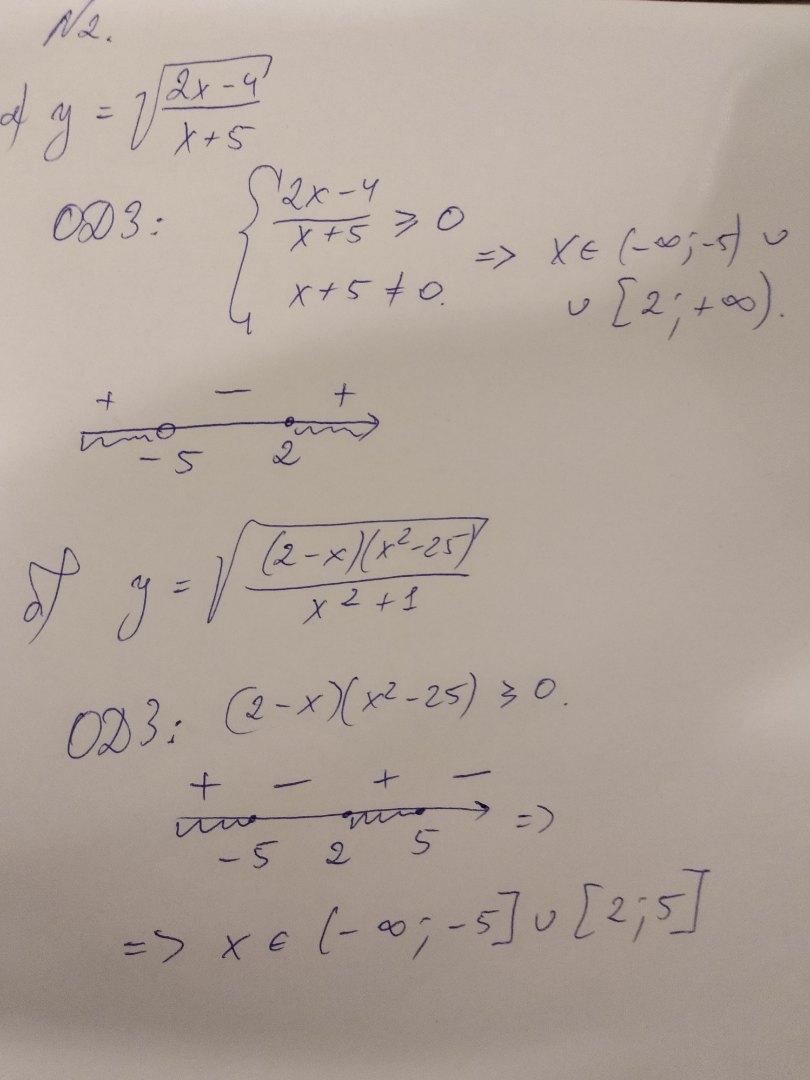 N2.
а) y = √((2x-4)/(x+5))
ОДЗ: { (2x-4)/(x+5) ≥ 0
x+5 ≠ 0.
=> x ∈ (-∞; -5) ∪
∪ [2; +∞).
+ — +
-5 2
б) y = √((2-x)(x²-25)/(x²+1))
ОДЗ: (2-x)(x²-25) ≥ 0.
+ — + —
-5 2 5 =>
=> x ∈ (-∞; -5] ∪ [2; 5]